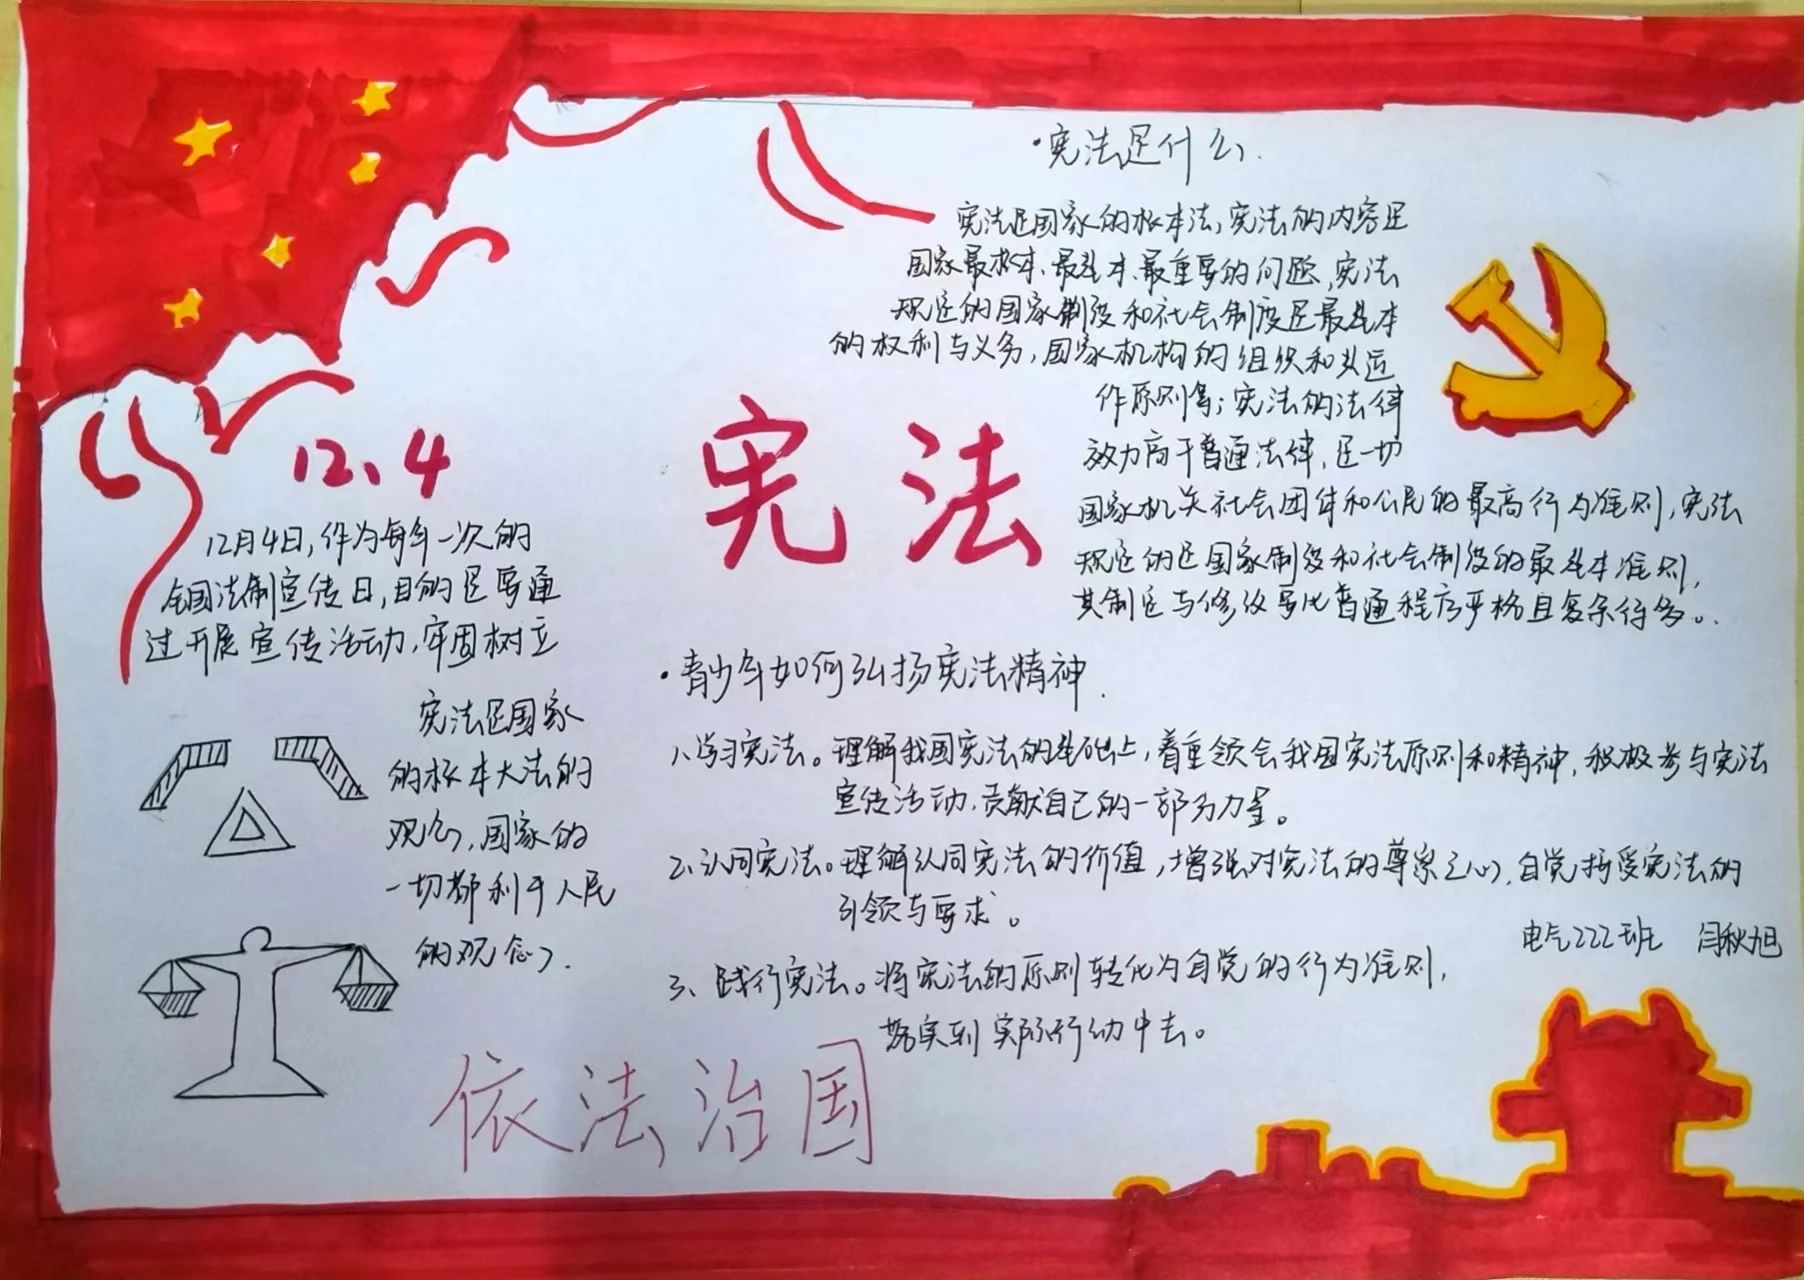 12、4
12月4日，作为每年一次的
全国法制宣传日，目的是要通
过开展宣传活动，牢固树立
宪法是国家
的根本大法的
观念，国家的
一切都利于人民
的观念。
宪法
·宪法是什么.
宪法是国家的根本法，宪法的内容是
国家最根本、最基本、最重要的问题，宪法
规定的国家制度和社会制度是最基本
的权利与义务，国家机构的组织和其运
作原则等；宪法的法律
效力高于普通法律，是一切
国家机关社会团体和公民的最高行为准则，宪法
规定的是国家制度和社会制度的最基本准则，
其制定与修改要比普通程序严格且复杂得多。
·青少年如何弘扬宪法精神.
1、学习宪法。理解我国宪法的基础上，着重领会我国宪法原则和精神，积极参与宪法
宣传活动，贡献自己的一部分力量。
2、认同宪法。理解认同宪法的价值，增强对宪法的尊崇之心，自觉接受宪法的
引领与要求。
3、践行宪法。将宪法的原则转化为自觉的行为准则，
落实到实际行动中去。
电气222班 闫秋旭
依法治国